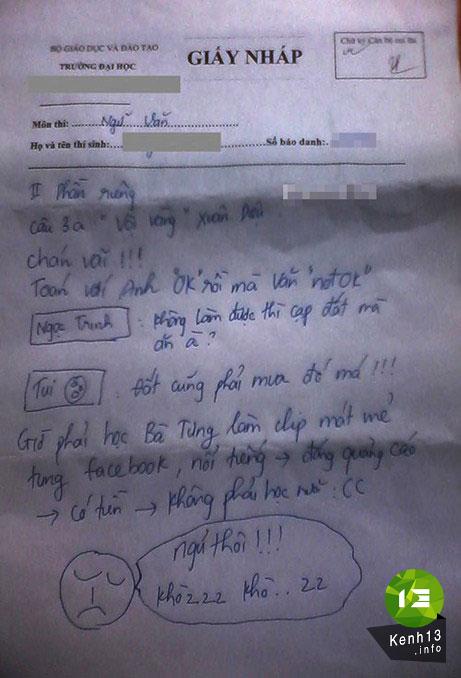 BỘ GIÁO DỤC VÀ ĐÀO TẠO
TRƯỜNG ĐẠI HỌC
GIẤY NHÁP
Chữ ký Cán bộ coi thi
Môn thi: Ngữ Văn
Họ và tên thí sinh:
Số báo danh:
II Phần riêng
Câu 3a "Vội vàng" Xuân Diệu
chán vãi !!!
Toán với Anh "OK" rồi mà Văn "not OK"
Ngọc Trinh : Không làm được thì cạp đất mà
ăn à?
Tui : Đất cũng phải mua đó má !!!
Giờ phải học Bà Tưng làm clip mát mẻ
tung facebook, nổi tiếng → đóng quảng cáo
→ Có tiền → không phải học nữa :CC
ngủ thôi !!!
Khò zzz khò .. zz
Kenh13
.info